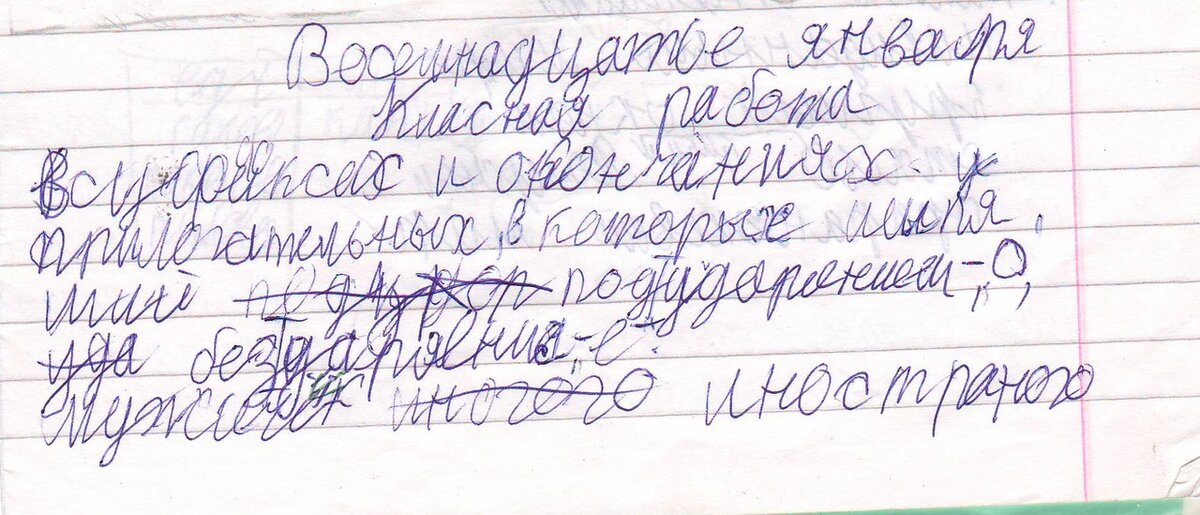 Восемнадцатое января
Класная работа
В суффиксах и окончаниях у
прилогательных, в которых шыпя
щий под удорением -О,
без ударения -е.
Мужской иностраного